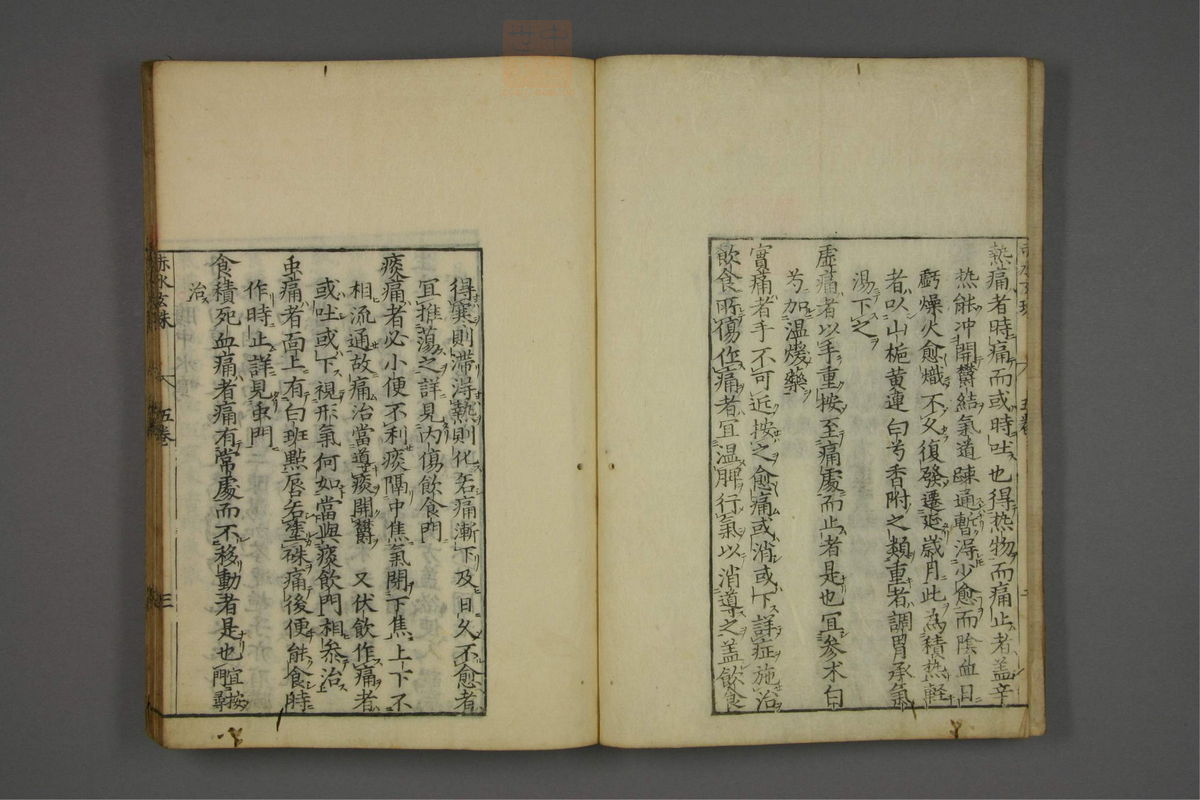 熱痛者時痛而或時吐也得热物而痛止者盖辛
热能冲開欝結氣道踈通暫淂少愈而陰血日
虧燥火愈熾不久復發遷延歳月此為積热軽
者以山梔黄連白芍香附之類重者調胃承氣
湯下之
虚痛者以手重按至痛處而止者是也宜参术白
芍加温煖藥
實痛者手不可近按之愈痛或消或下詳症施治
飲食所傷作痛者宜温脾行氣以消導之盖飲食
得寒則滞淂熱則化若痛漸下及日久不愈者
宜推蕩之詳見内傷飲食門
痰痛者必小便不利痰隔中焦氣閉下焦上下不
相流通故痛治當導痰開欝 又伏飲作痛者
或吐或下視形氣何如當與痰飲門相参治
虫痛者面上有白班㸃唇若塗硃痛後便能食時
作時止詳見虫門
食積死血痛者痛有常處而不移動者是也宜按門尋
治
赤水玄珠 五巻 三